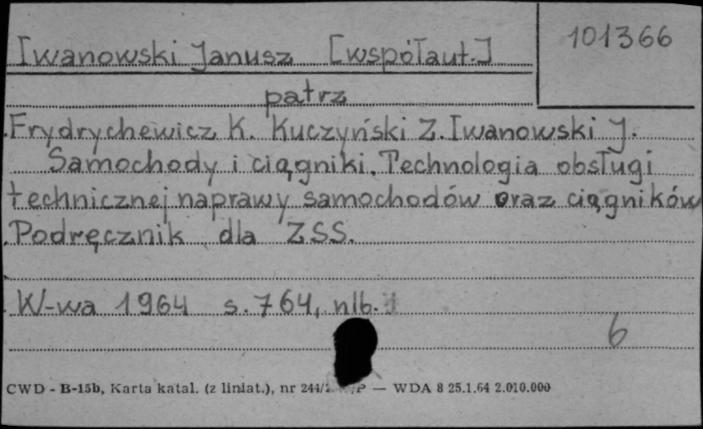 Iwanowski Janusz [współaut.]
101366
patrz
Frydrychewicz K. Kuczyński Z. Iwanowski J.
Samochody i ciągniki. Technologia obsługi
technicznej naprawy samochodów oraz ciągników
Podręcznik dla ZSS.
W-wa 1964 s. 764, nlb.
6
CWD - B-15b, Karta katal. (z liniat.), nr 244/ — WDA 8 25.1.64 2.010.000